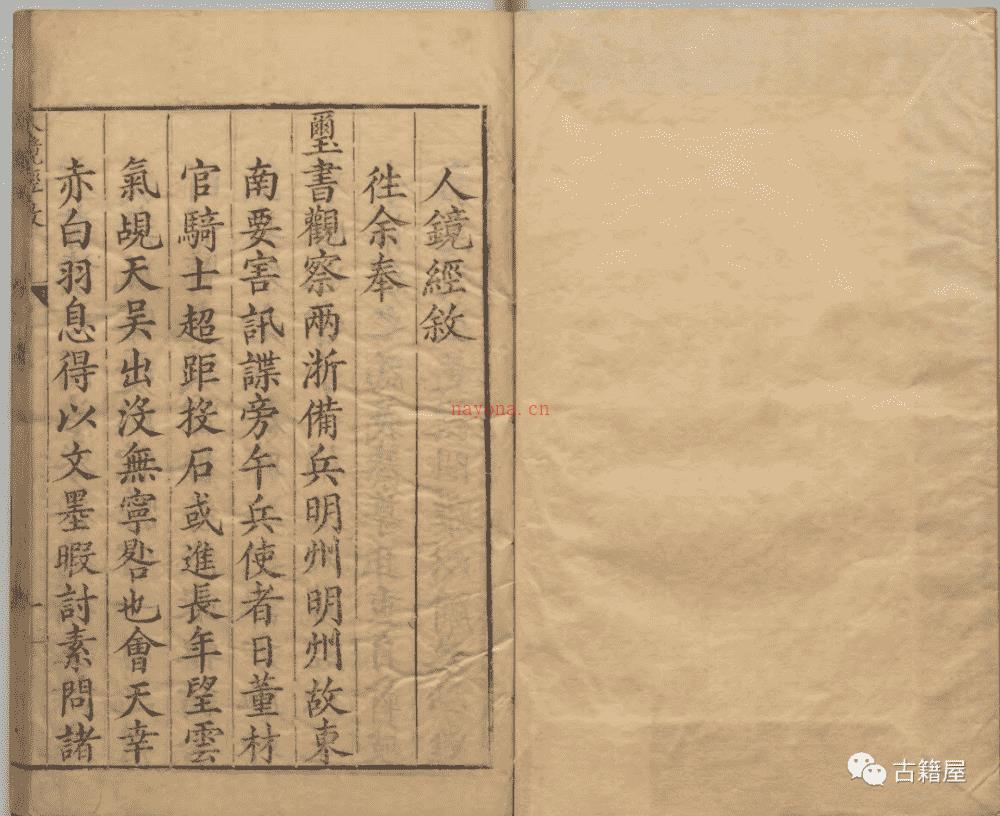 人鏡經敘
徃余奉
璽書觀察兩浙備兵明州明州故東
南要害訊諜旁午兵使者日董材
官騎士超距投石或進長年望雲
氣覘天吴出没無寧晷也會天幸
赤白羽息得以文墨暇討素問諸
人鏡經敘
一
nayona.cn
古籍屋